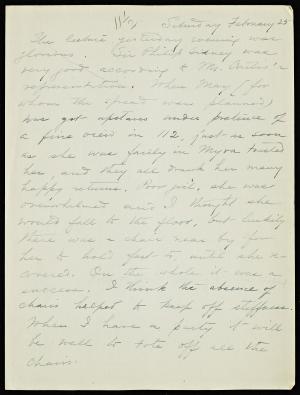 Saturday February 25
The lecture yesterday evening was
glorious. Sir Philip Sidney was
very good according to Mr.
representation. When May (for
whom the spread was planned)
was got upstairs under pretence of
a fine view in 112, just as soon
as she was fairly in Myra toasted
her, and they all drank her many
happy returns. Poor girl, she was
overwhelmed and I thought she
would fall to the floor, but luckily
there was a chair near by for
her to hold fast to, until she re-
covered. On the whole it was a
success. I think the absence of
chairs helped to keep off stiffness.
When I have a party it will
be well to tote off all the
chairs.